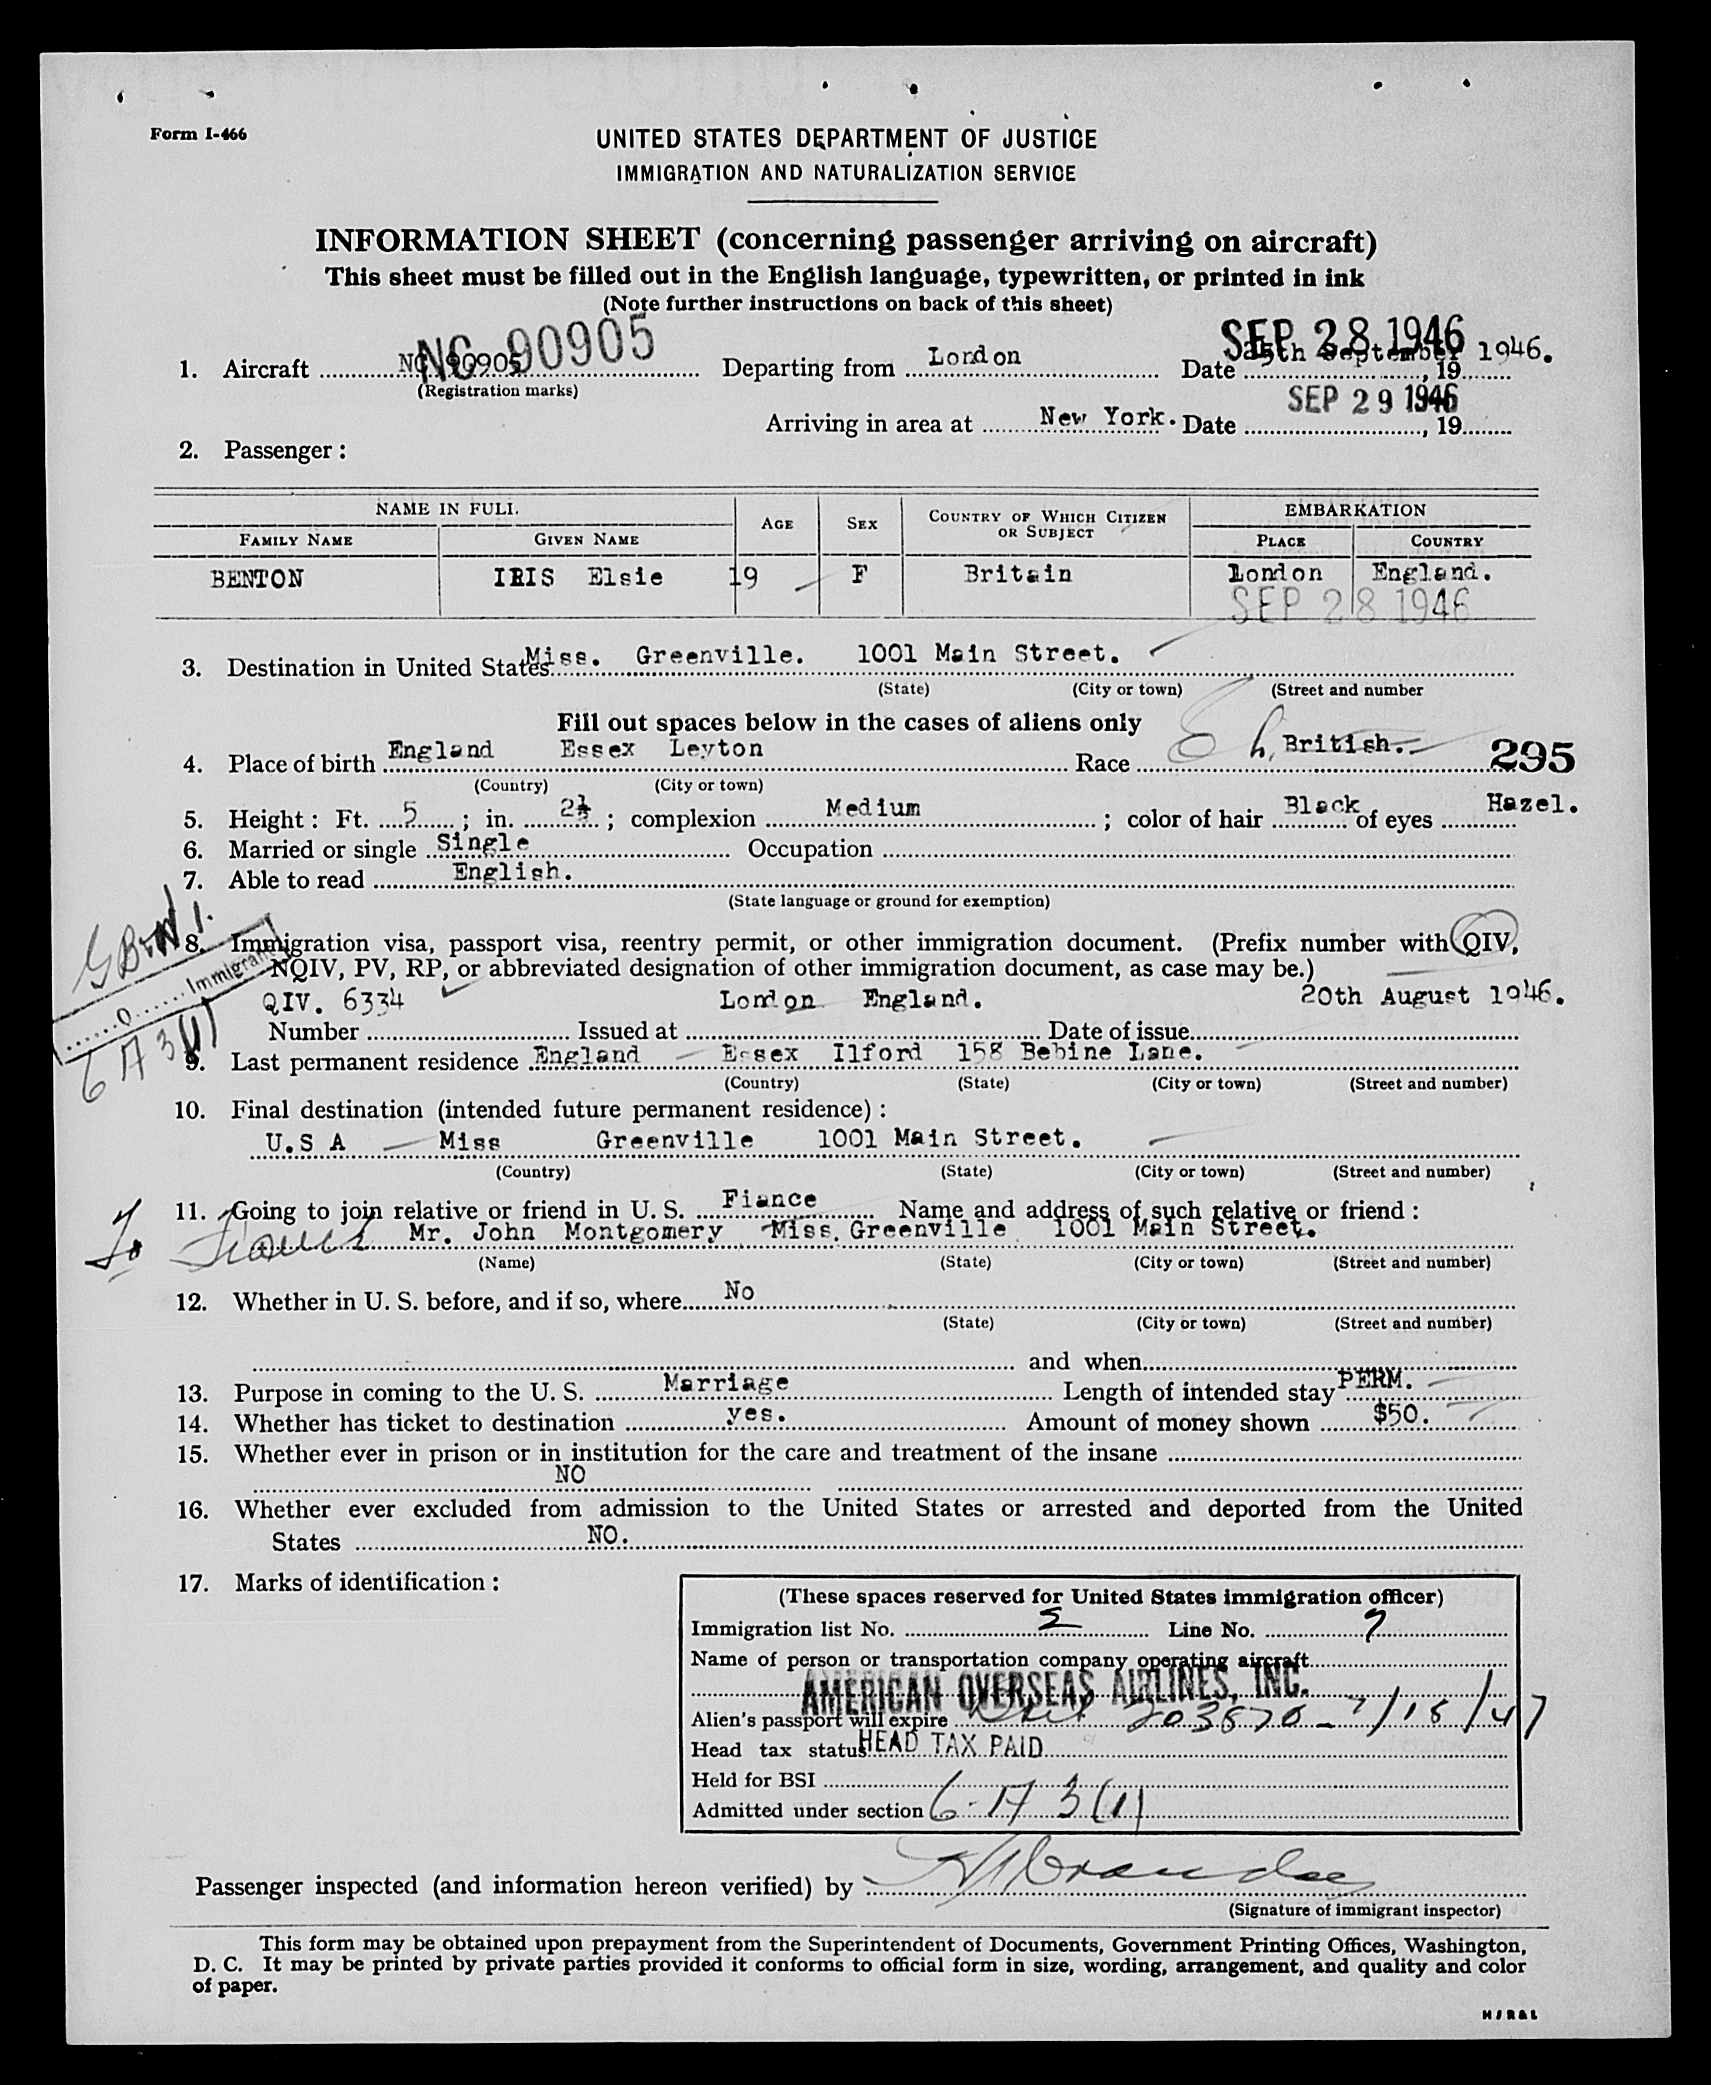 Form I-466
UNITED STATES DEPARTMENT OF JUSTICE
IMMIGRATION AND NATURALIZATION SERVICE
INFORMATION SHEET (concerning passenger arriving on aircraft)
This sheet must be filled out in the English language, typewritten, or printed in ink
(Note further instructions on back of this sheet)
NC 90905 SEP 28 1946
1. Aircraft NC 90905 Departing from London Date 25th September 1946., 19
(Registration marks)
SEP 29 1946
Arriving in area at New York. Date , 19
2. Passenger :
NAME IN FULL EMBARKATION
FAMILY NAME GIVEN NAME AGE SEX COUNTRY OF WHICH CITIZEN OR SUBJECT PLACE COUNTRY
BENTON IRIS Elsie 19 F Britain London England.
SEP 28 1946
3. Destination in United States Miss. Greenville. 1001 Main Street.
(State) (City or town) (Street and number
Fill out spaces below in the cases of aliens only
4. Place of birth England Essex Leyton Race British. 295
(Country) (City or town)
5. Height : Ft. 5 ; in. 2½ ; complexion Medium ; color of hair Black of eyes Hazel.
6. Married or single Single Occupation
7. Able to read English.
(State language or ground for exemption)
8. Immigration visa, passport visa, reentry permit, or other immigration document. (Prefix number with QIV,
NQIV, PV, RP, or abbreviated designation of other immigration document, as case may be.)
Q Immigrant
6 A 3(1)
QIV. 6334 London England. 20th August 1946.
Number Issued at Date of issue
9. Last permanent residence England Essex Ilford 158 Bebine Lane.
(Country) (State) (City or town) (Street and number)
10. Final destination (intended future permanent residence) :
U.S A Miss Greenville 1001 Main Street.
(Country) (State) (City or town) (Street and number)
11. Going to join relative or friend in U. S. Fiance Name and address of such relative or friend :
To Fiance Mr. John Montgomery Miss. Greenville 1001 Main Street.
(Name) (State) (City or town) (Street and number)
12. Whether in U. S. before, and if so, where No
(State) (City or town) (Street and number)
and when
13. Purpose in coming to the U. S. Marriage Length of intended stay PERM.
14. Whether has ticket to destination yes. Amount of money shown $50.
15. Whether ever in prison or in institution for the care and treatment of the insane
NO
16. Whether ever excluded from admission to the United States or arrested and deported from the United
States NO.
17. Marks of identification :
(These spaces reserved for United States immigration officer)
Immigration list No. 2 Line No. 7
Name of person or transportation company operating aircraft
AMERICAN OVERSEAS AIRLINES, INC.
Alien's passport will expire Brit 203870 - 7/18/47
Head tax status HEAD TAX PAID
Held for BSI
Admitted under section 6-A 3(1)
Passenger inspected (and information hereon verified) by
(Signature of immigrant inspector)
This form may be obtained upon prepayment from the Superintendent of Documents, Government Printing Offices, Washington,
D. C. It may be printed by private parties provided it conforms to official form in size, wording, arrangement, and quality and color
of paper.